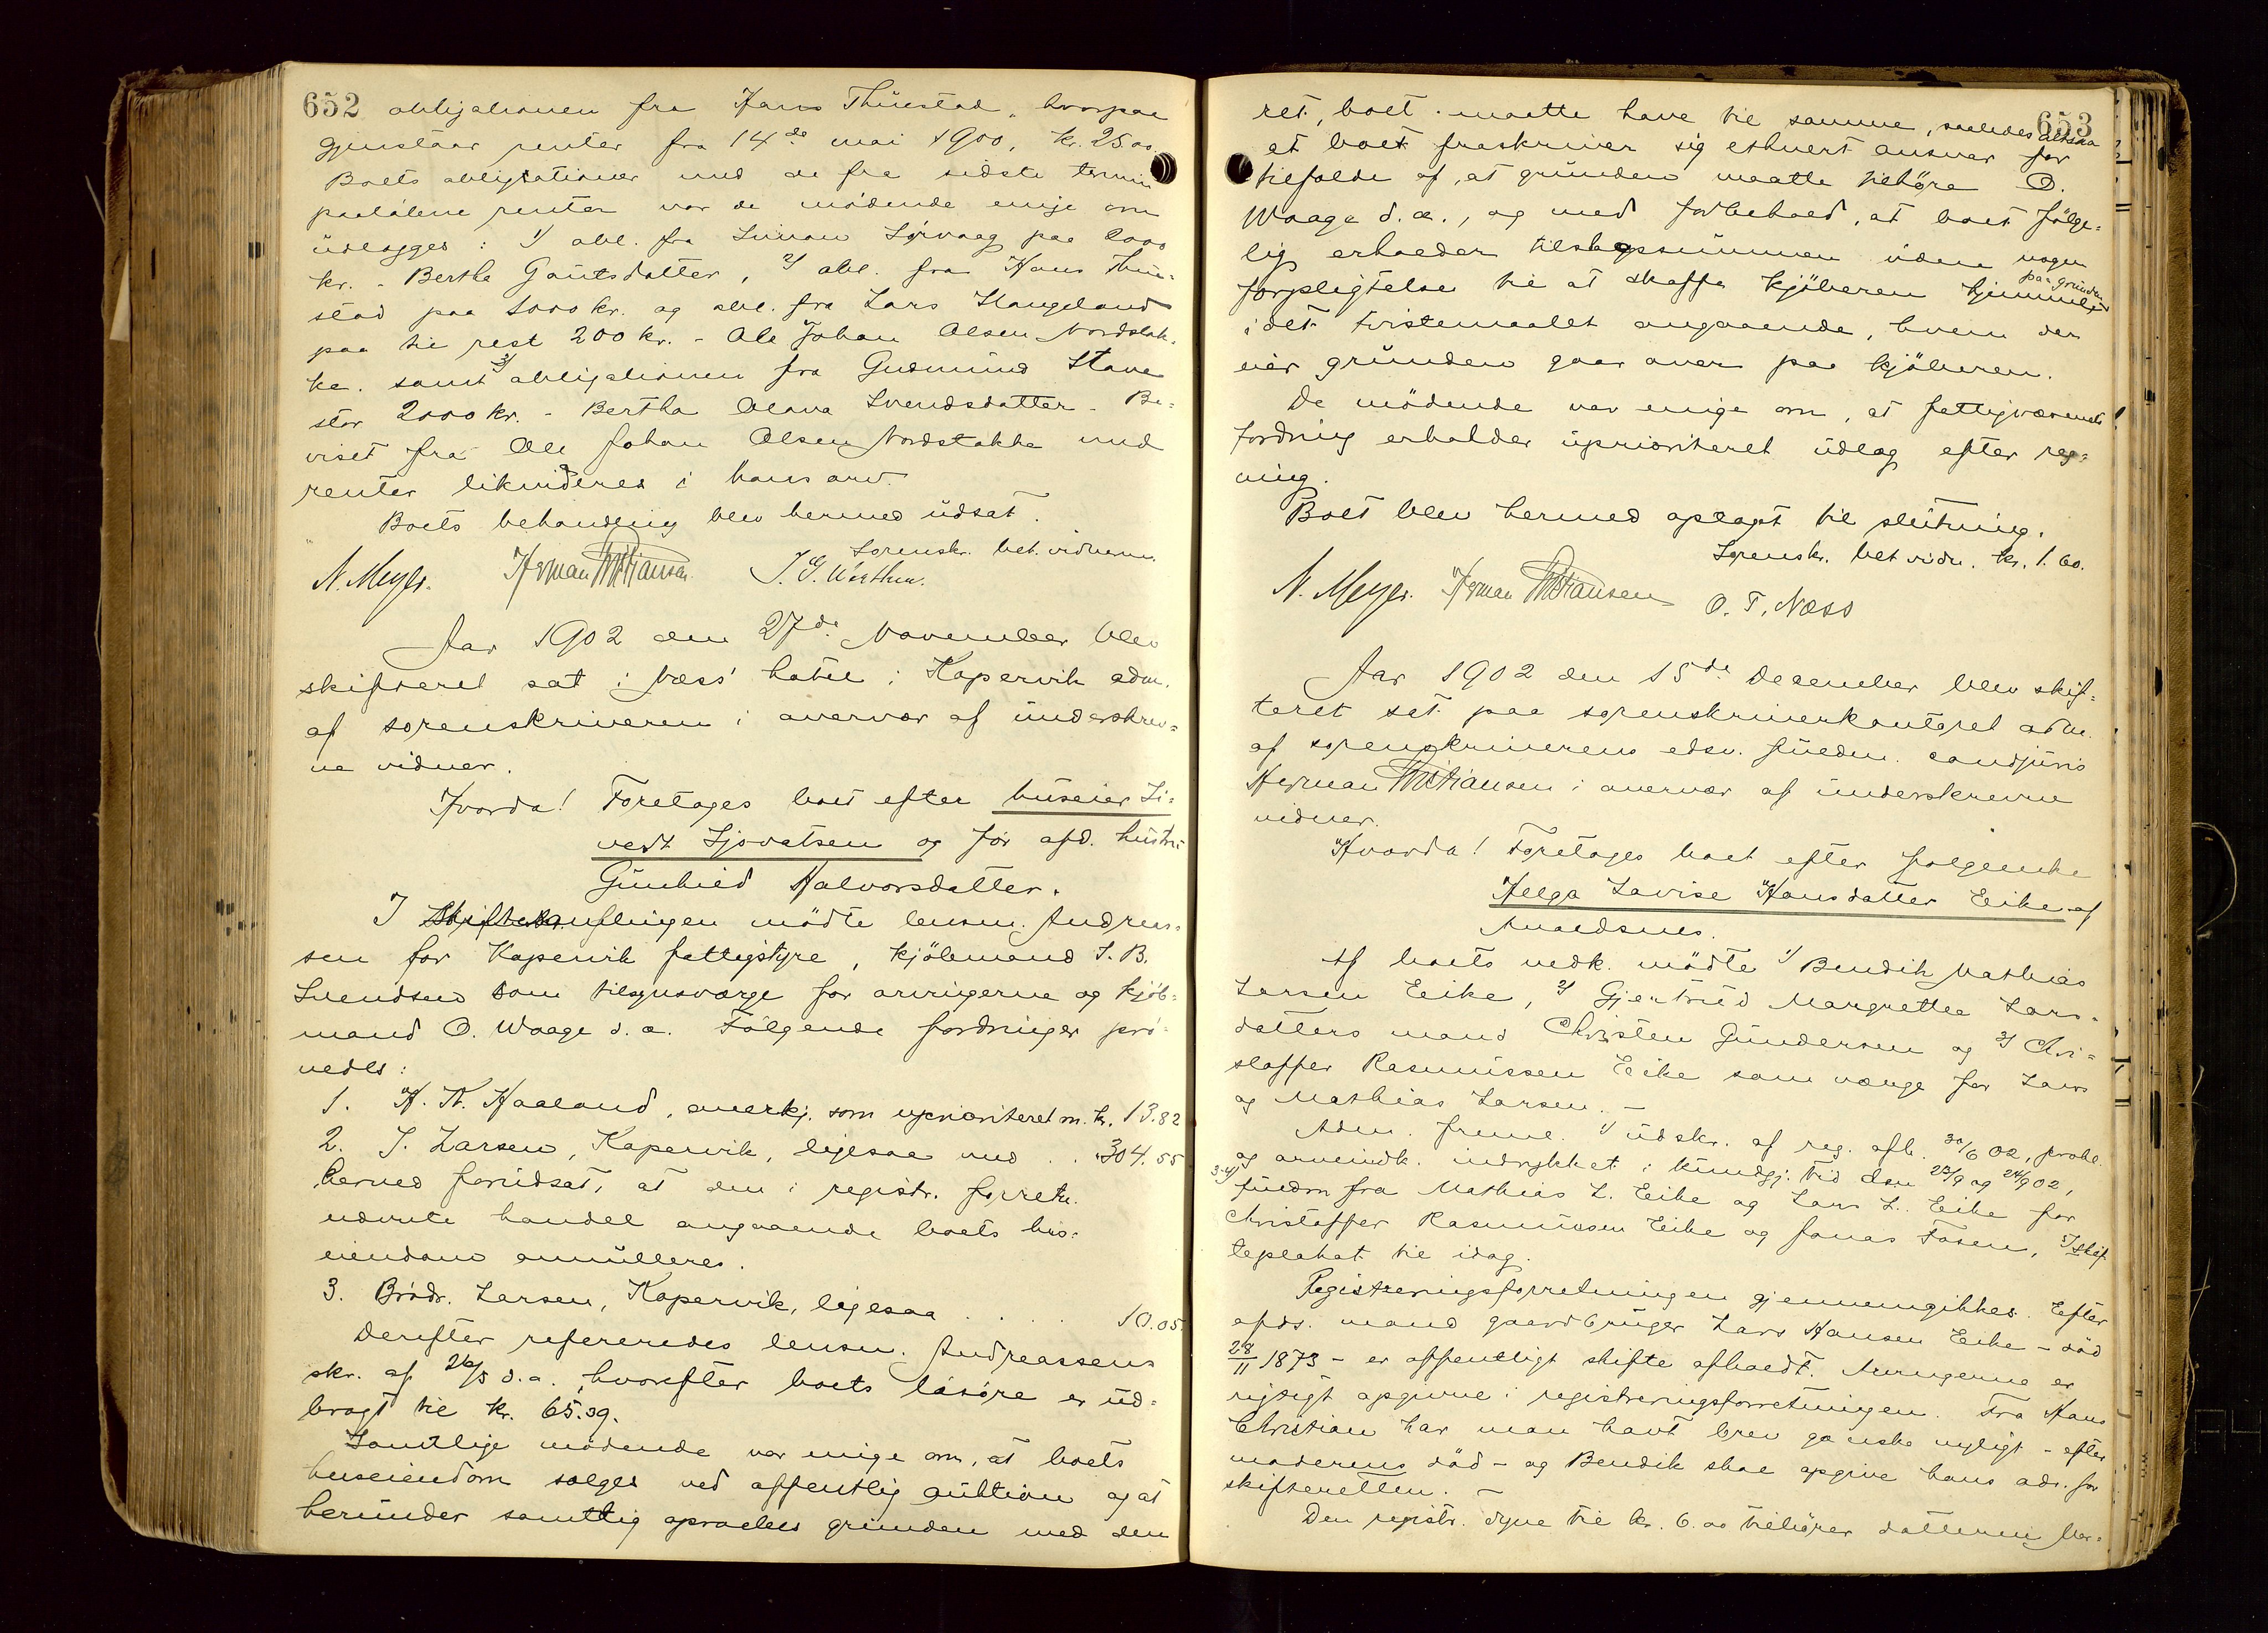 652
obligationen fra Hans Thuestad, hvorpaa
gjenstaar renter fra 14de mai 1900, kr. 25.00.
Boets obligationer med de fra sidste termin
paaløbne renter var de mødende enige om
udlægges: 1/ obl. fra Simon Sørvaag paa 2000
kr. - Berthe Gautsdatter, 2/ obl. fra Hans Thue-
stad paa 1000 kr. og obl. fra Lars Stangeland
paa til rest 200 kr. - Ole Johan Olsen Nordstok-
ke. samt 3/ obligationen fra Gudmund Stave
stor 2000 kr. - Bertha Olava Svendsdatter. Be-
viset fra Ole Johan Olsen Nordstokke med
renter likvideres i hans arv.
Boets behandling blev hermed udsat.
Sorenskr. bet. vidnerne.
N. Meyer. Herman Christiansen J. G. Worthen.
Aar 1902 den 27de November blev
skifteret sat i Næss' hotel i Kopervik adm.
af sorenskriveren i overvær af underskrev-
ne vidner.
Hvorda! Foretages boet efter huseier Si-
vert Sjovatsen og før afd. hustru
Gunhild Halvorsdatter.
I skiftesamlingen mødte lensm. Andreas-
sen for Kopervik fattigstyre, kjøbmand S. B.
Svendsen som tilsynsværge for arvingerne og kjøb-
mand O. Waage d. æ. Følgende fordringer prø-
vedes:
1. H. N. Haaland, anerkj. som uprioriteret m. kr. 13.82
2. J. Larsen, Kopervik, ligesaa med . . " 304.55
herved forudsat, at den i registr. forretn.
nævnte handel angaaende boets hus-
eiendom annulleres.
3. Brødr. Larsen, Kopervik, ligesaa . . . . 10.05.
Derefter refereredes lensm. Andreassens
skr. af 26/5 d. a., hvorefter boets løsøre er ud-
bragt til kr. 65.39.
Samtlige mødende var enige om, at boets
huseiendom sælges ved offentlig auktion og at
herunder samtlig opraabes grunden med den
653
ret, boet maatte have til samme, saaledes altsaa
at boet fraskriver sig ethvert ansvar for
tilfælde af, at grunden maatte tilhøre O.
Waage d. æ., og med forbehold, at boet følge-
lig erholder tilslagssummen uden nogen
forpligtelse til at skaffe kjøberen hjemmel paa grunden
idet tvistemaalet angaaende, hvem der
eier grunden gaar over paa kjøberen.
De mødende var enige om, at fattigvæsenets
fordring erholder uprioriteret udlæg efter reg-
ning.
Boet blev hermed optaget til slutning.
Sorenskr. bet vidn. kr. 1.60.
N. Meyer. Herman Christiansen O. T. Næss
Aar 1902 den 15de Desember blev skif-
teret sat paa sorenskriverkontoret adm.
af sorenskriverens edsv. fuldm. cand juris
Herman Christiansen i overvær af underskrevne
vidner.
Hvorda! Foretages boet efter følgende
Helga Lovise Hansdatter Eike af
Avaldsnes.
Af boets vedk. mødte 1/ Bendik Mathias
Larsen Eike, 2/ Gjertrud Margrethe Lars-
datters mand Christen Gundersen og 3/ Chri-
stoffer Rasmussen Eike som værge for Lars
og Mathias Larsen. -
Adm. freml. 1/ udskr. af reg. afh. 30/6 02, prokl.
og arveindk. indrykket i kundgj. tid den 23/9 og 24/9 02,
3-4/ fuldm fra Mathias L. Eike og Lars L. Eike for
Christoffer Rasmussen Eike og Jonas Fosen, 5/ skif-
teplakat til idag.
Registreringsforretningen gjennemgikkes. Efter
afds. mand gaardbruger Lars Hansen Eike - død
28/11 1873 - er offentligt skifte afholdt. Arvingerne er
rigtigt opgivne i registreringsforretningen. Fra Hans
Christian har man havt brev ganske nyligt - efter
moderens død - og Bendik skal opgive hans adr. for
skifteretten. -
Den registr. dyne til kr. 6.00 tilhører datteren Mar-